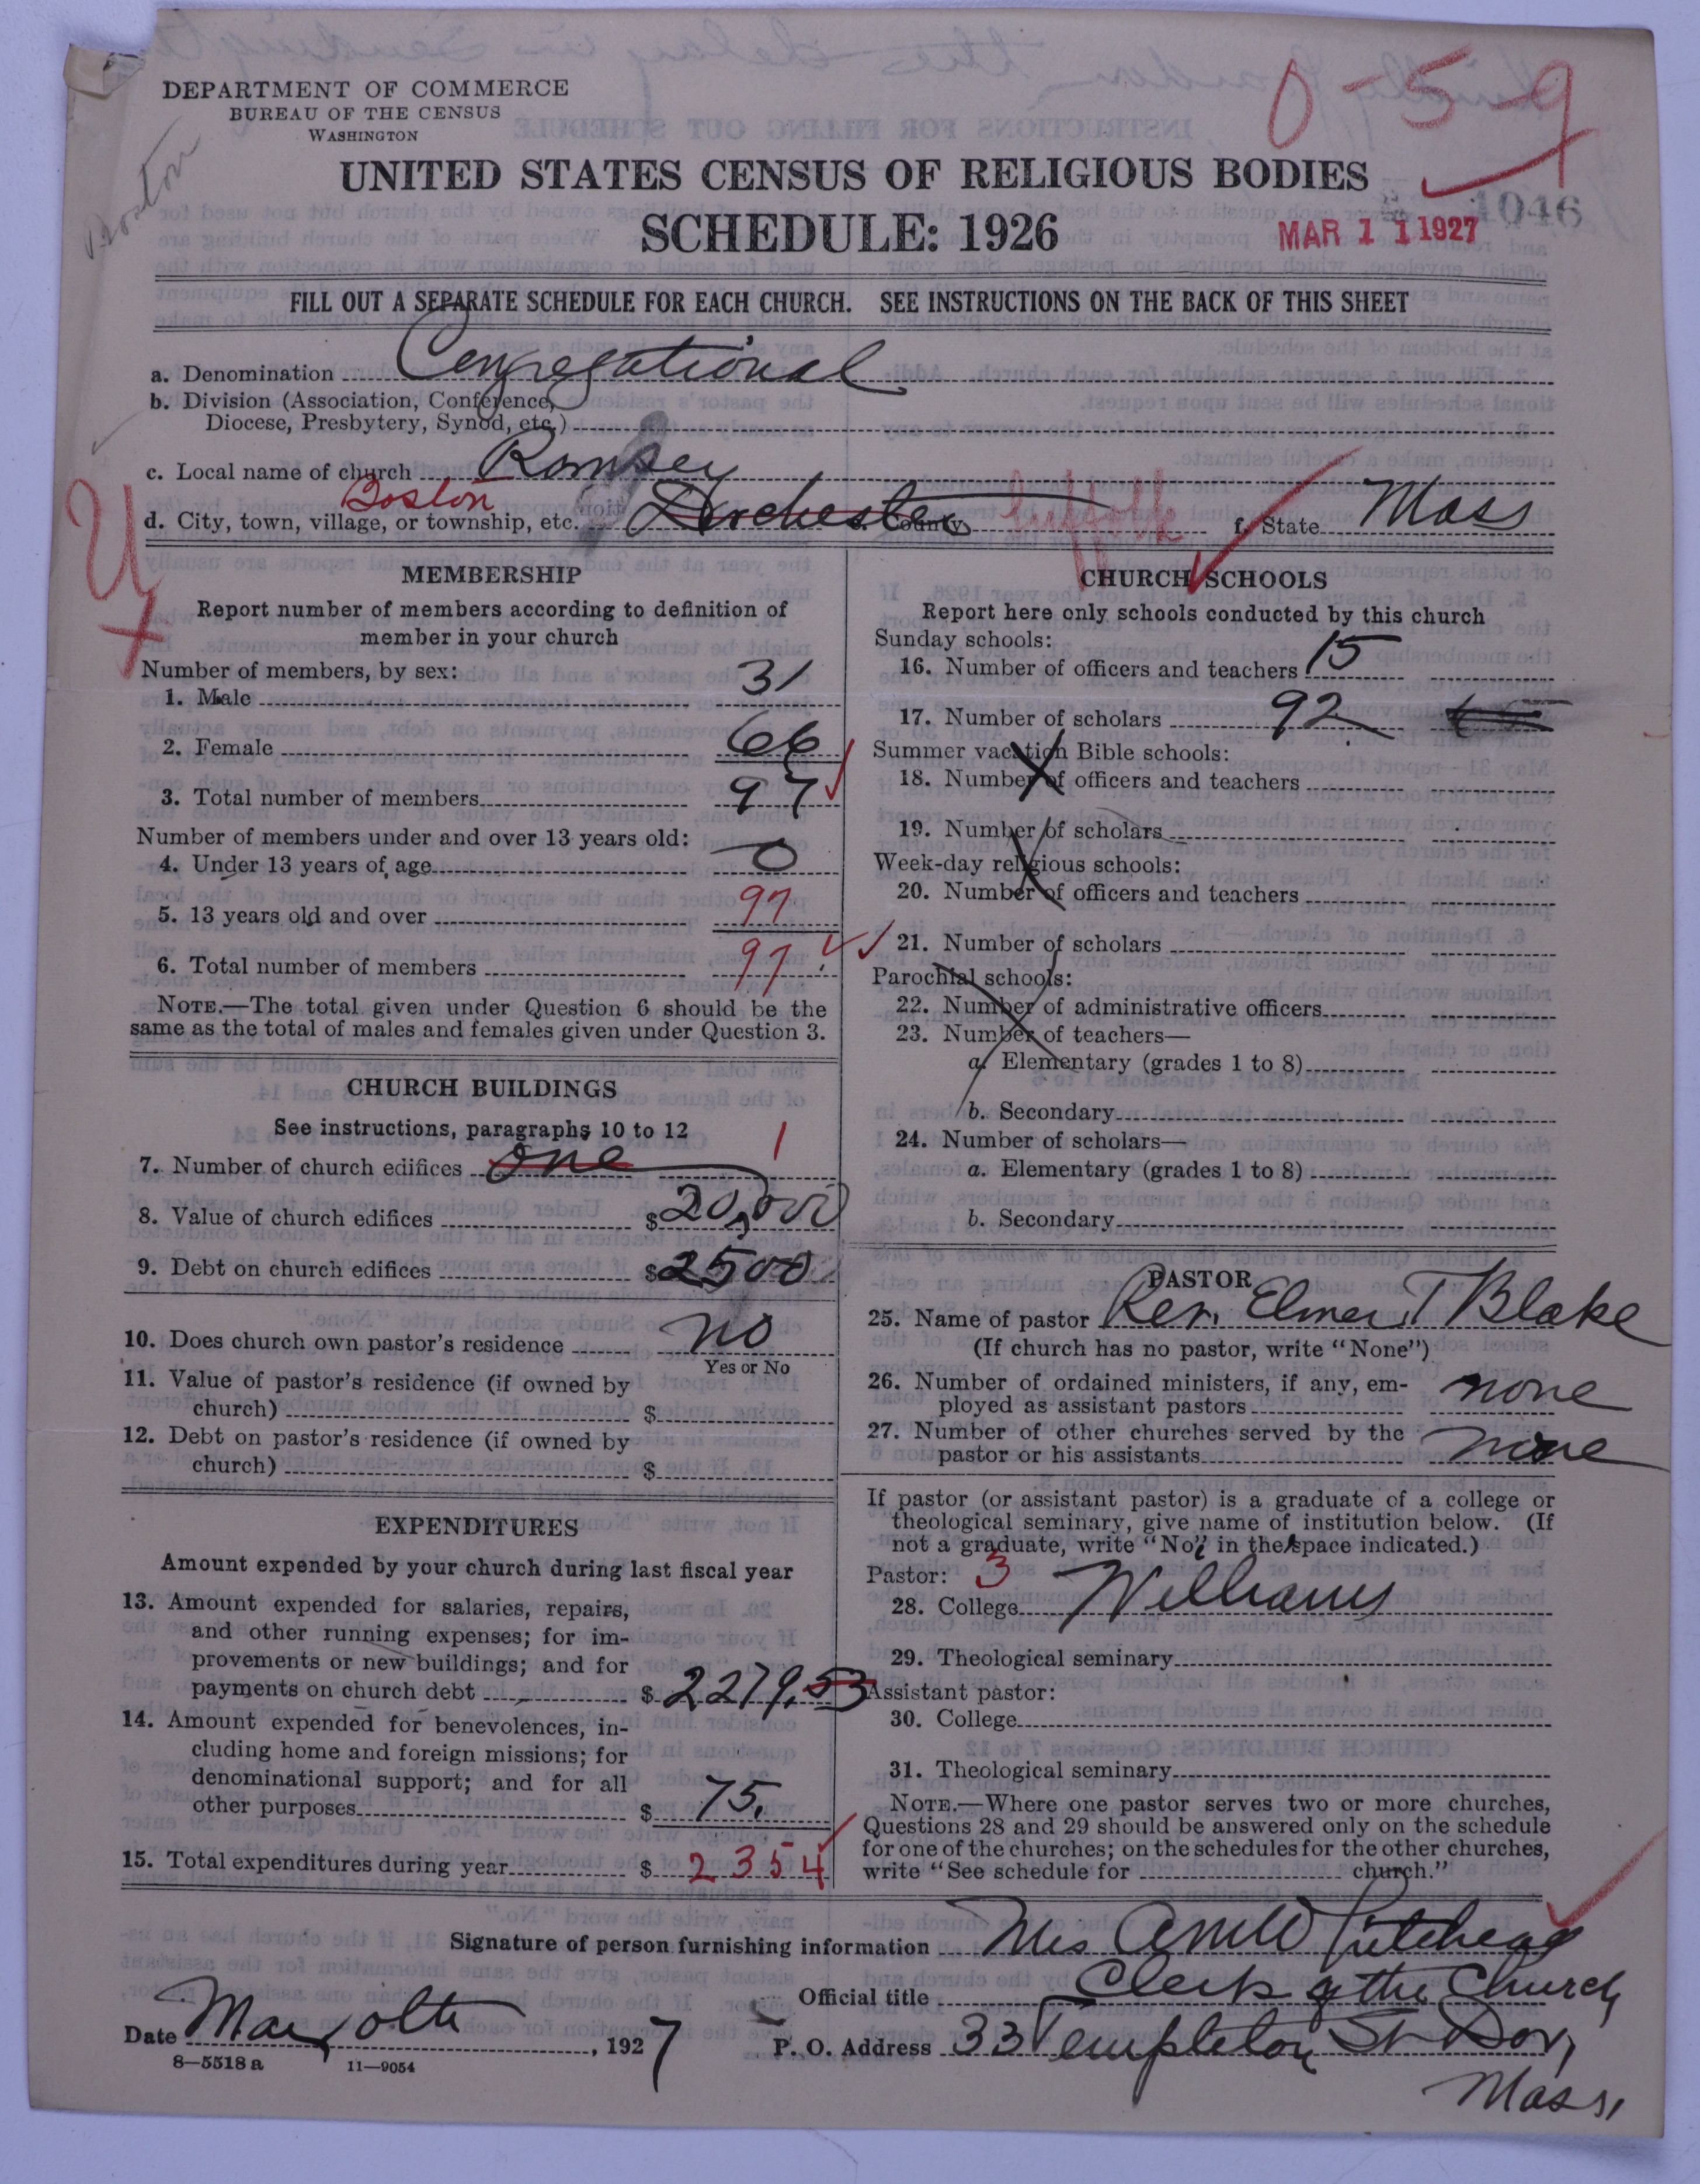 DEPARTMENT OF COMMERCE
BUREAU OF THE CENSUS
WASHINGTON
Boston
0-5-9
UNITED STATES CENSUS OF RELIGIOUS BODIES
SCHEDULE: 1926
1046
MAR 11 1927
FILL OUT A SEPARATE SCHEDULE FOR EACH CHURCH. SEE INSTRUCTIONS ON THE BACK OF THIS SHEET
a. Denomination Congregational
b. Division (Association, Conference,
Diocese, Presbytery, Synod, etc.)
c. Local name of church Romsey
Boston
d. City, town, village, or township, etc. Dorchester e. County Suffolk f. State Mass
MEMBERSHIP
Report number of members according to definition of
member in your church
Number of members, by sex:
1. Male 31
2. Female 66
3. Total number of members 97
Number of members under and over 13 years old:
4. Under 13 years of age 0
5. 13 years old and over 97
6. Total number of members 97
NOTE.—The total given under Question 6 should be the
same as the total of males and females given under Question 3.
CHURCH BUILDINGS
See instructions, paragraphs 10 to 12
7. Number of church edifices one 1
8. Value of church edifices $20,000
9. Debt on church edifices $2500
10. Does church own pastor's residence no
Yes or No
11. Value of pastor's residence (if owned by
church) $
12. Debt on pastor's residence (if owned by
church) $
EXPENDITURES
Amount expended by your church during last fiscal year
13. Amount expended for salaries, repairs,
and other running expenses; for im-
provements or new buildings; and for
payments on church debt $2279.53
14. Amount expended for benevolences, in-
cluding home and foreign missions; for
denominational support; and for all
other purposes $ 75.
15. Total expenditures during year $ 2354
CHURCH SCHOOLS
Report here only schools conducted by this church
Sunday schools:
16. Number of officers and teachers 15
17. Number of scholars 92
Summer vacation Bible schools:
18. Number of officers and teachers
19. Number of scholars
Week-day religious schools:
20. Number of officers and teachers
21. Number of scholars
Parochial schools:
22. Number of administrative officers
23. Number of teachers—
a. Elementary (grades 1 to 8)
b. Secondary
24. Number of scholars—
a. Elementary (grades 1 to 8)
b. Secondary
PASTOR
25. Name of pastor Rev. Elmer T Blake
(If church has no pastor, write "None")
26. Number of ordained ministers, if any, em-
ployed as assistant pastors none
27. Number of other churches served by the
pastor or his assistants none
If pastor (or assistant pastor) is a graduate of a college or
theological seminary, give name of institution below. (If
not a graduate, write "No" in the space indicated.)
Pastor: 3
28. College Williams
29. Theological seminary
Assistant pastor:
30. College
31. Theological seminary
NOTE.—Where one pastor serves two or more churches,
Questions 28 and 29 should be answered only on the schedule
for one of the churches; on the schedules for the other churches,
write "See schedule for church."
Signature of person furnishing information Mrs
Official title Clerk of the Church
Date Mar 10th, 1927 P. O. Address 33 Templeton St Dor,
Mass,
8—5518 a 11—9054